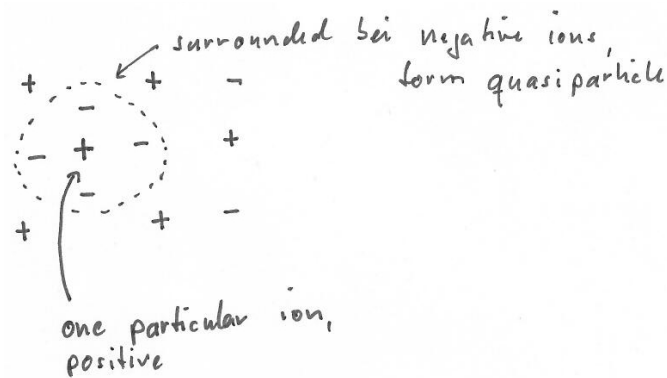 surrounded bei negative ions,
form quasiparticle
+ + -
-
- + - +
-
+ + -
one particular ion,
positive